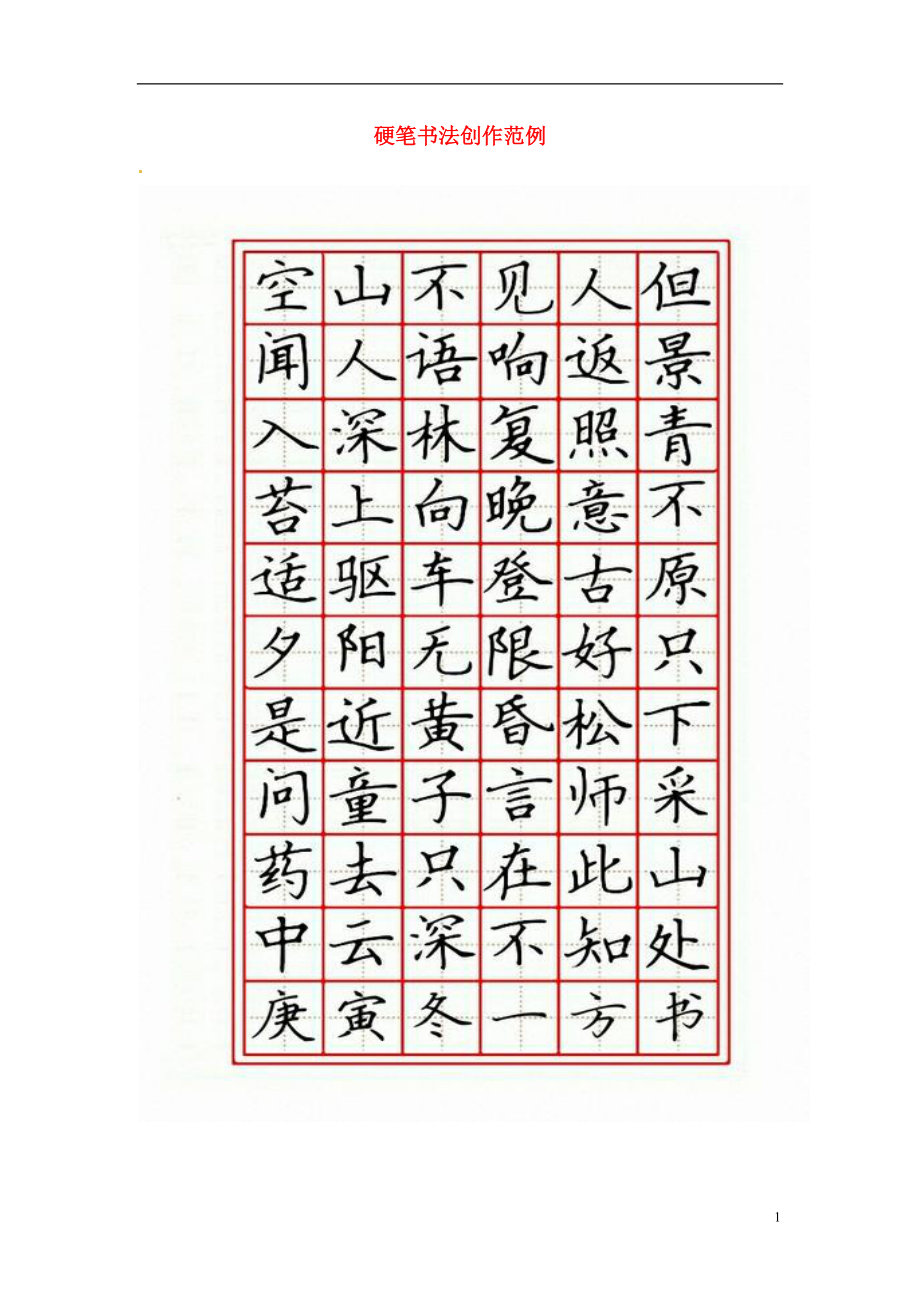 硬笔书法创作范例
空山不见人但
闻人语响返景
入深林复照青
苔上向晚意不
适驱车登古原
夕阳无限好只
是近黄昏松下
问童子言师采
药去只在此山
中云深不知处
庚寅冬一方书
1